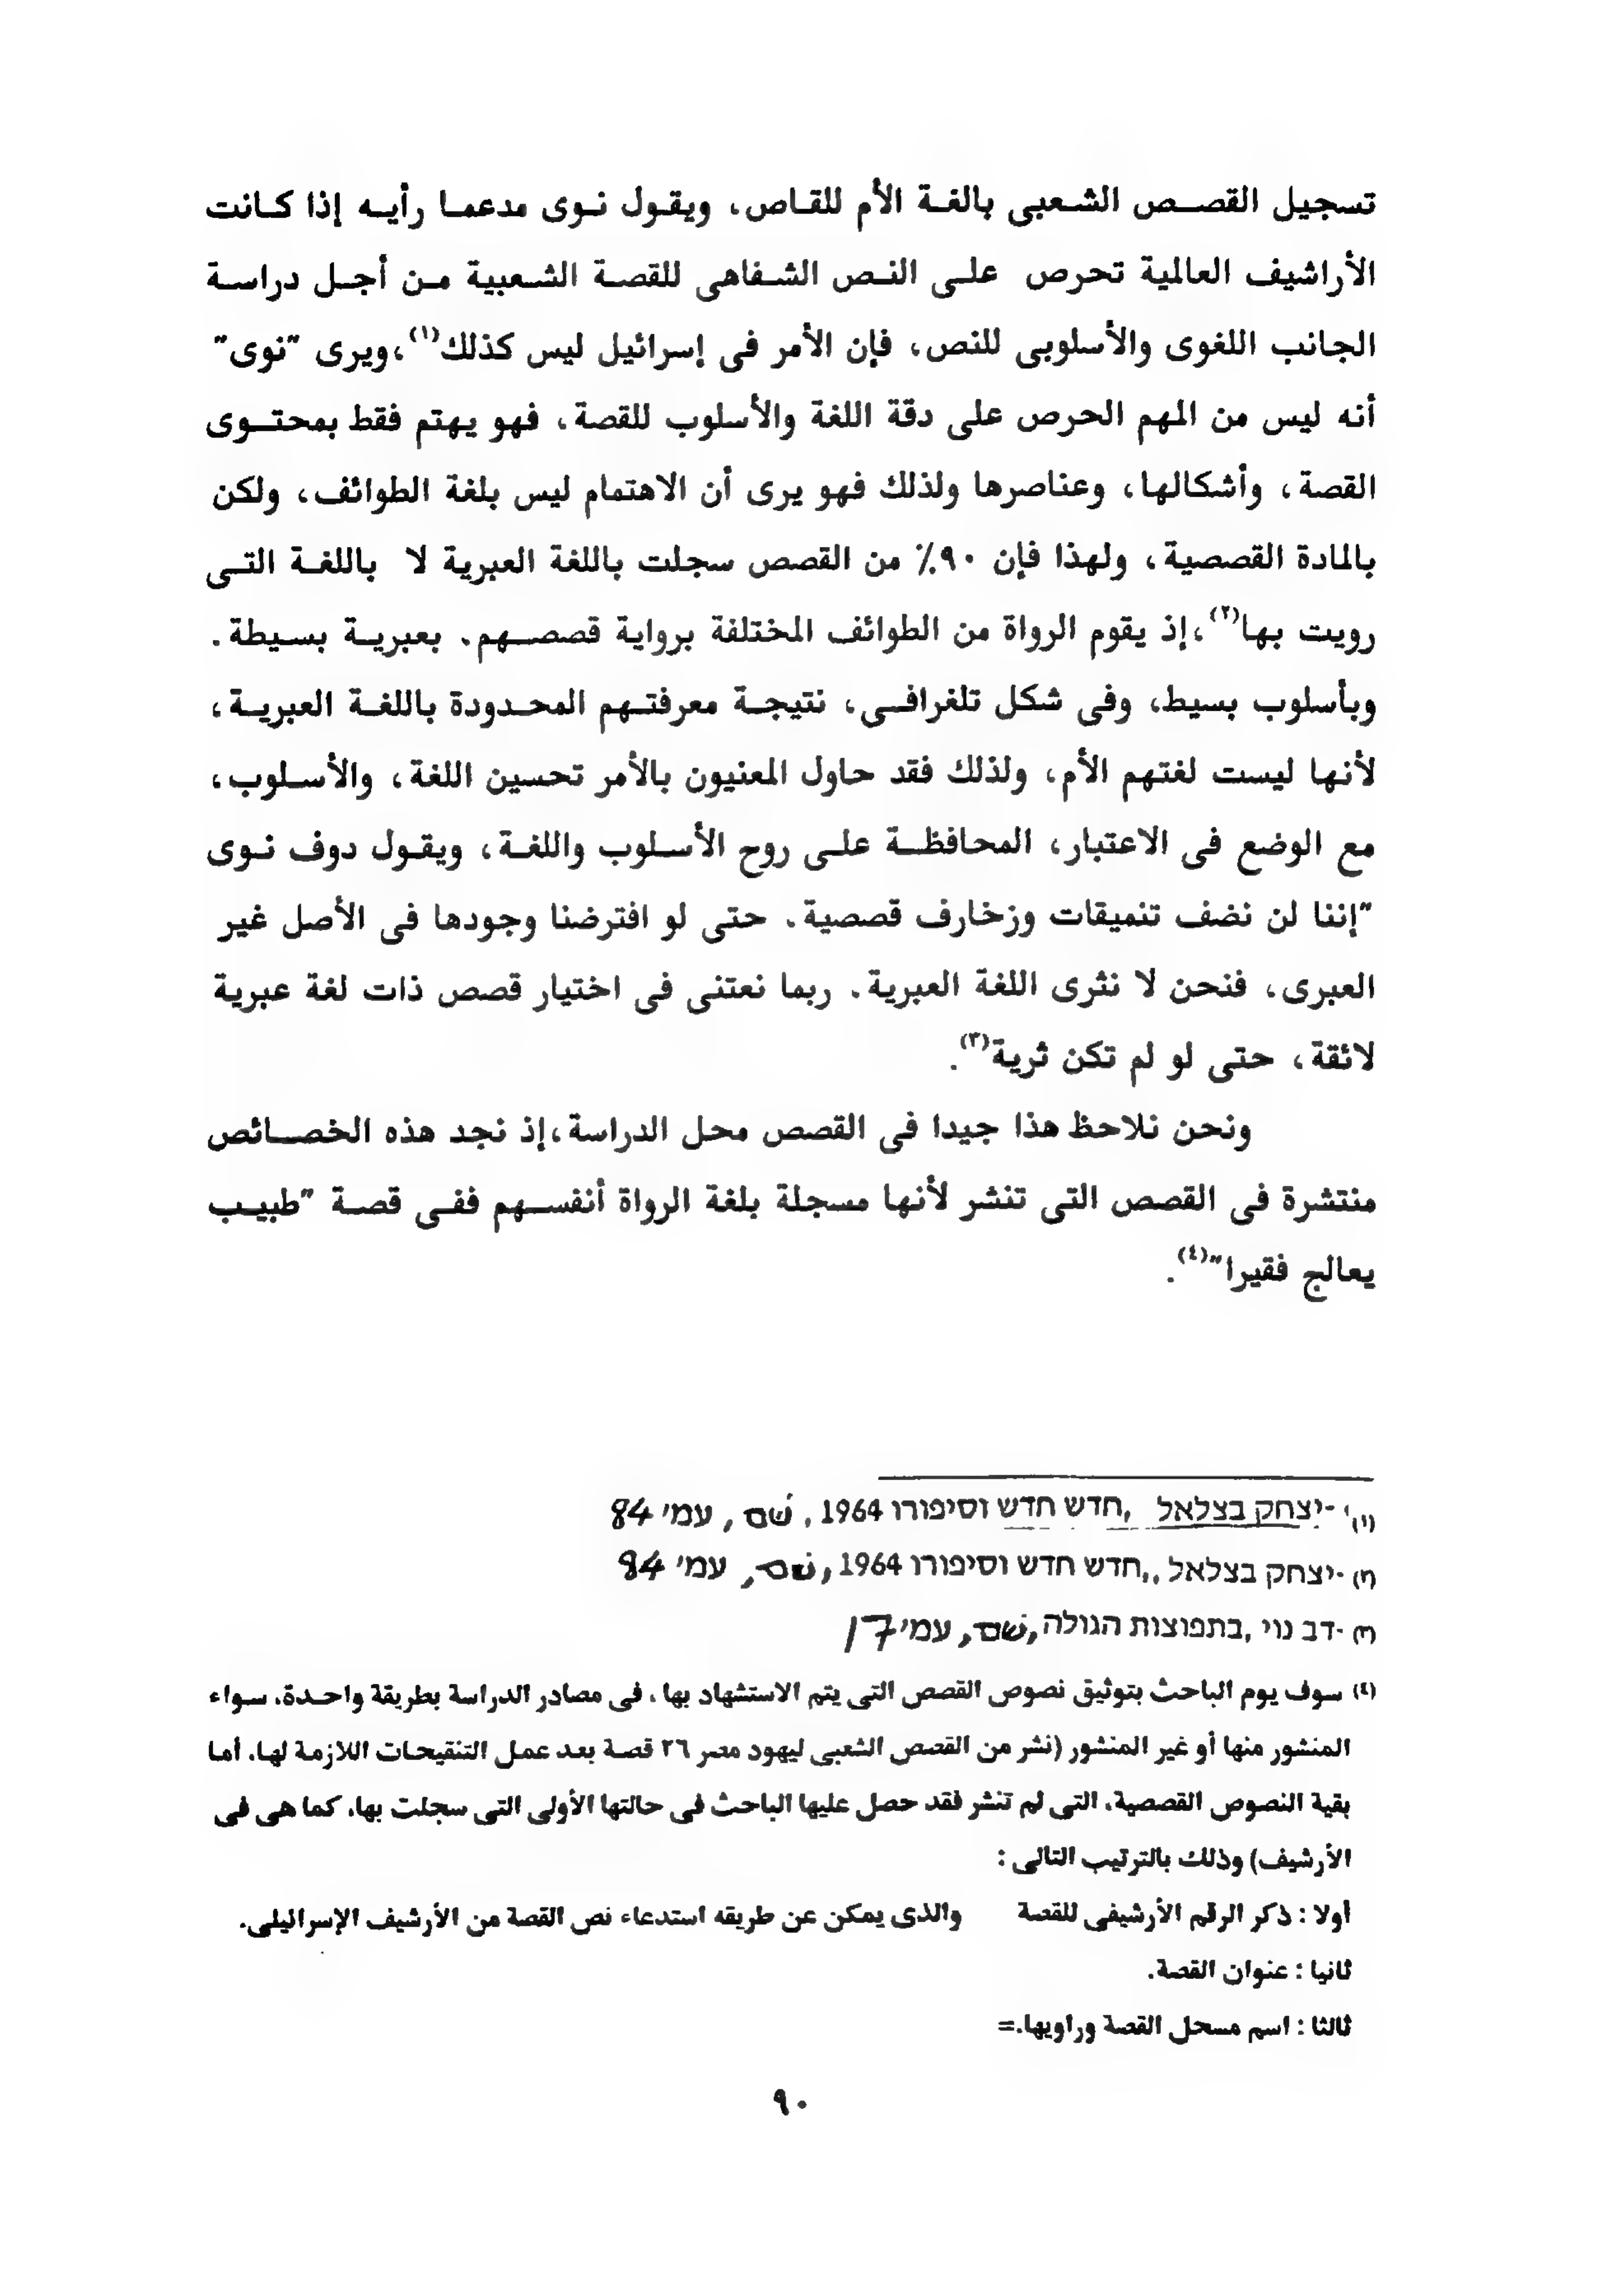 تسجيل القصص الشعبى بالغة الأم للقاص، ويقول نوى مدعما رأيه إذا كانت
الأراشيف العالمية تحرص على النص الشفاهى للقصة الشعبية من أجل دراسة
الجانب اللغوى والأسلوبى للنص، فإن الأمر فى إسرائيل ليس كذلك(١)،ويرى "نوى"
أنه ليس من المهم الحرص على دقة اللغة والأسلوب للقصة، فهو يهتم فقط بمحتوى
القصة، وأشكالها، وعناصرها ولذلك فهو يرى أن الاهتمام ليس بلغة الطوائف، ولكن
بالمادة القصصية، ولهذا فإن ٩٠٪ من القصص سجلت باللغة العبرية لا باللغة التى
رويت بها(٢)،إذ يقوم الرواة من الطوائف المختلفة برواية قصصهم. بعبرية بسيطة.
وبأسلوب بسيط، وفى شكل تلغرافى، نتيجة معرفتهم المحدودة باللغة العبرية،
لأنها ليست لغتهم الأم، ولذلك فقد حاول المعنيون بالأمر تحسين اللغة، والأسلوب،
مع الوضع فى الاعتبار، المحافظة على روح الأسلوب واللغة، ويقول دوف نوى
"إننا لن نضف تنميقات وزخارف قصصية. حتى لو افترضنا وجودها فى الأصل غير
العبرى، فنحن لا نثرى اللغة العبرية. ربما نعتنى فى اختيار قصص ذات لغة عبرية
لائقة، حتى لو لم تكن ثرية(٣).
ونحن نلاحظ هذا جيدا فى القصص محل الدراسة،إذ نجد هذه الخصائص
منتشرة فى القصص التى تنشر لأنها مسجلة بلغة الرواة أنفسهم ففى قصة "طبيب
يعالج فقيرا"(٤).
(١) -יצחק בצלאל ,חדש חדש וסיפורו 1964, שם, עמ' 84
(٢) -יצחק בצלאל,,חדש חדש וסיפורו 1964, שם, עמ' 84
(٣) -דב נוי ,בתפוצות הגולה, שם, עמ' 17
(٤) سوف يوم الباحث بتوثيق نصوص القصص التى يتم الاستشهاد بها، فى مصادر الدراسة بطريقة واحدة. سواء
المنشور منها أو غير المنشور (نشر من القصص الشعبى ليهود مصر ٢٦ قصة بعد عمل التنقيحات اللازمة لها. أما
بقية النصوص القصصية. التى لم تنشر فقد حصل عليها الباحث فى حالتها الأولى التى سجلت بها. كما هى فى
الأرشيف) وذلك بالترتيب التالى :
أولا : ذكر الرقم الأرشيفى للقصة والذى يمكن عن طريقه استدعاء نص القصة من الأرشيف الإسرائيلى.
ثانيا : عنوان القصة.
ثالثا : اسم مسحل القصة وراويها.=
٩٠